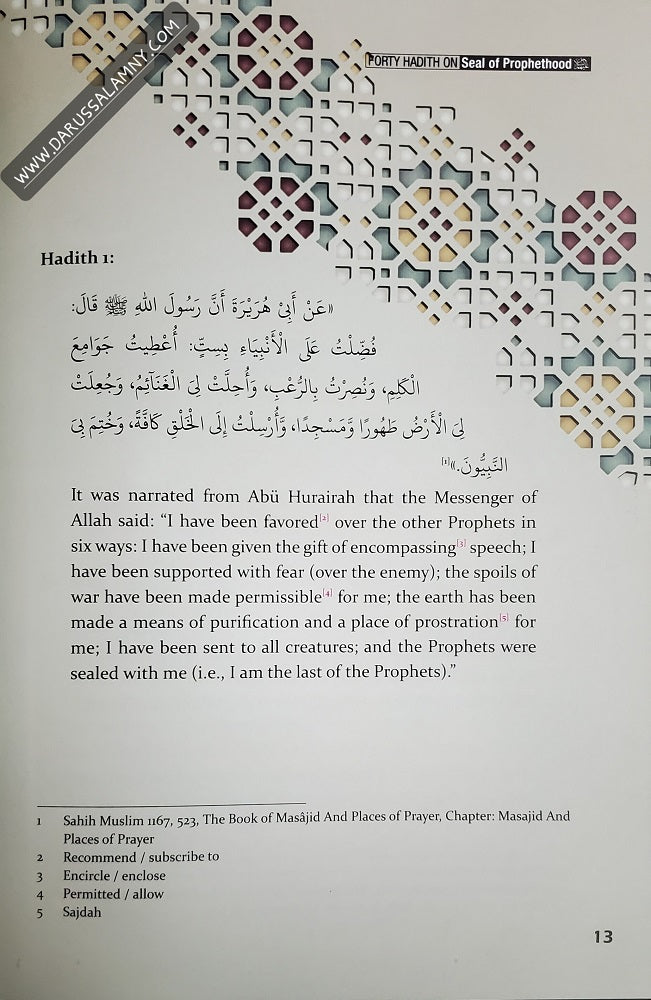 WWW.DARUSSALAMNY.COM
FORTY HADITH ON Seal of Prophethood ﷺ
Hadith 1:
«عَنْ أَبِيْ هُرَيْرَةَ أَنَّ رَسُولَ اللهِ ﷺ قَالَ:
فُضِّلْتُ عَلَى الْأَنْبِيَاءِ بِسِتٍّ: أُعْطِيتُ جَوَامِعَ
الْكَلِمِ، وَنُصِرْتُ بِالرُّعْبِ، وَأُحِلَّتْ لِيَ الْغَنَآئِمُ، وَجُعِلَتْ
لِيَ الْأَرْضُ طَهُورًا وَّمَسْجِدًا، وَّأُرْسِلْتُ إِلَى الْخَلْقِ كَافَّةً، وَخُتِمَ بِيَ
النَّبِيُّونَ.»[1]
It was narrated from Abü Hurairah that the Messenger of
Allah said: “I have been favored[2] over the other Prophets in
six ways: I have been given the gift of encompassing[3] speech; I
have been supported with fear (over the enemy); the spoils of
war have been made permissible[4] for me; the earth has been
made a means of purification and a place of prostration[5] for
me; I have been sent to all creatures; and the Prophets were
sealed with me (i.e., I am the last of the Prophets).”
1 Sahih Muslim 1167, 523, The Book of Masâjid And Places of Prayer, Chapter: Masajid And
Places of Prayer
2 Recommend / subscribe to
3 Encircle / enclose
4 Permitted / allow
5 Sajdah
13